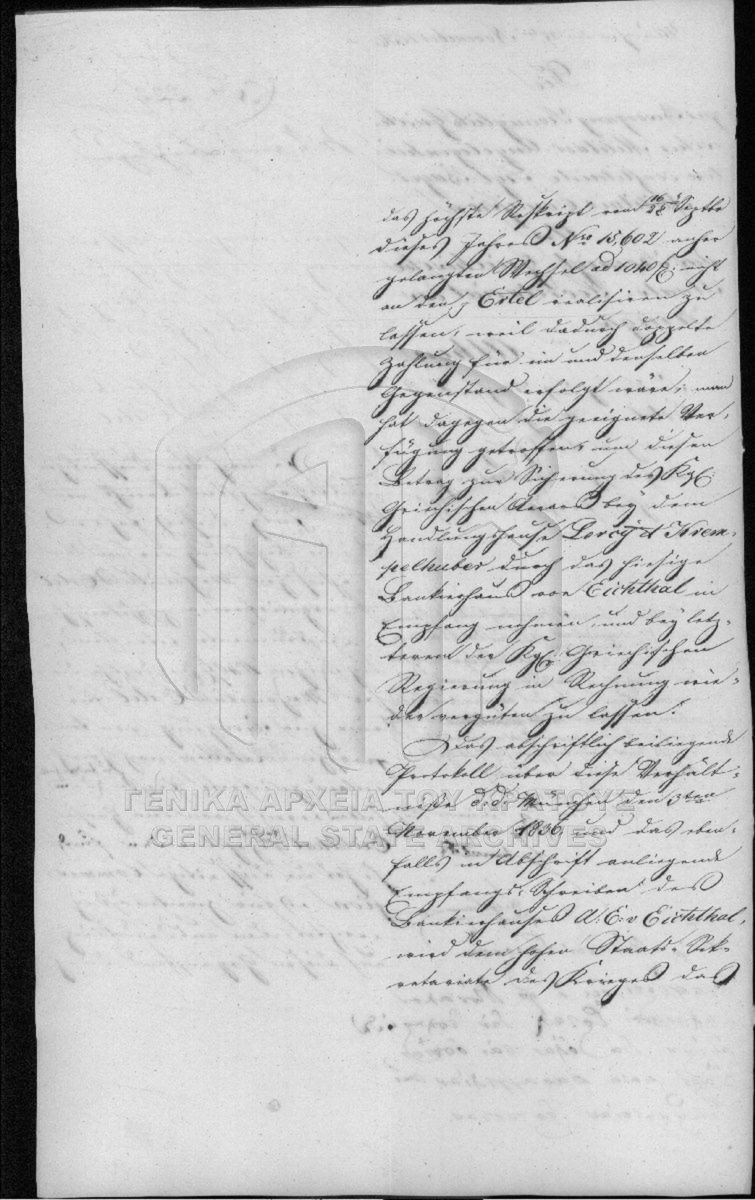 das höchste Reskript vom 16/28 Septbr
dieses Jahres Nro 15,602 anher
gelangten Wechsel ad 1040 f: nicht
an den p Ertel realisiren zu
lassen, weil dadurch doppelte
Zahlung für ein und denselben
Gegenstand erfolgt wäre; man
hat dagegen die geeignete Ver-
fügung getroffen, um diesen
Betrag zur Sicherung des Kgl:
Griechischen Aerars bey dem
Handlungshause Lorey & Krem-
pelhuber durch das hiesige
Bankierhaus von Eichthal in
Empfang nehmen, und bey letz-
terem der Kgl: Griechischen
Regierung in Rechnung wie-
der vergüten zu lassen.
Das abschriftlich beiliegende
Protokoll über diese Verhält-
nisse d.d. München den 3ten
November 1836, und das eben-
falls in Abschrift anliegende
Empfangs-Schreiben des
Bankierhauses A: E: v Eichthal,
wird dem hohen Staats-Sek-
retariate des Krieges das
ΓΕΝΙΚΑ ΑΡΧΕΙΑ ΤΟΥ ΚΡΑΤΟΥΣ
GENERAL STATE ARCHIVES